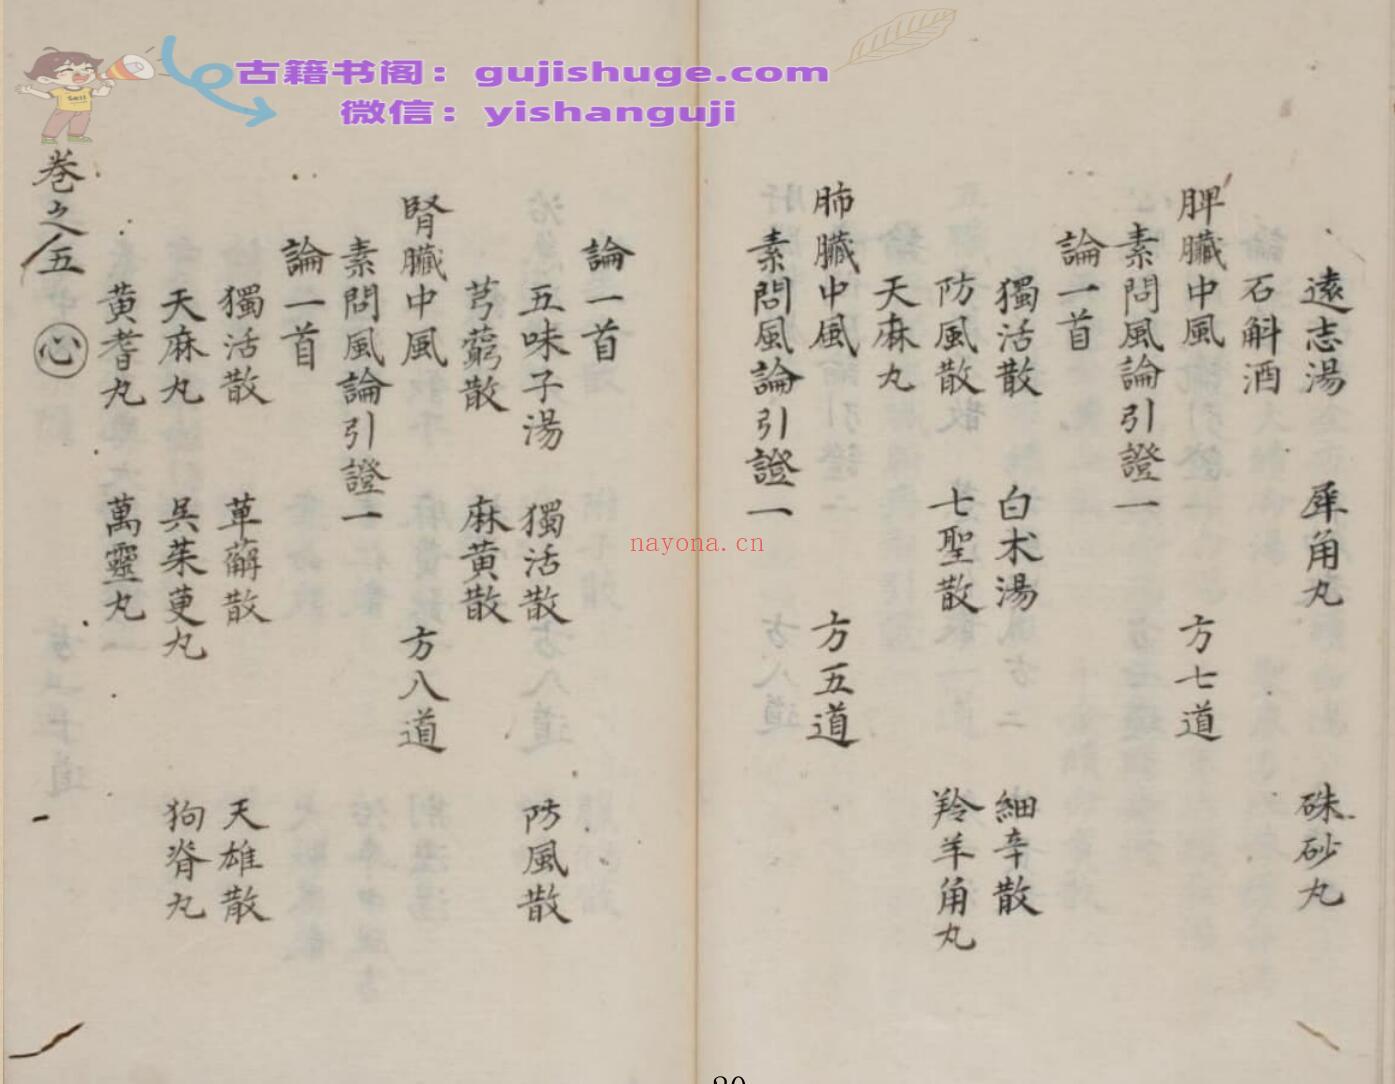 古籍书阁：gujishuge.com
微信：yishanguji
遠志湯 犀角丸 硃砂丸
石斛酒
脾臟中風 方七道
素問風論引證一
論一首
獨活散 白术湯 細辛散
防風散 七聖散 羚羊角丸
天麻丸
肺臟中風 方五道
素問風論引證一
論一首
五味子湯 獨活散 防風散
芎藭散 麻黄散
腎臟中風 方八道
素問風論引證一
論一首
獨活散 萆薢散 天雄散
天麻丸 吳茱萸丸 狗脊丸
黄耆丸 萬靈丸
卷之五 心
nayona.cn